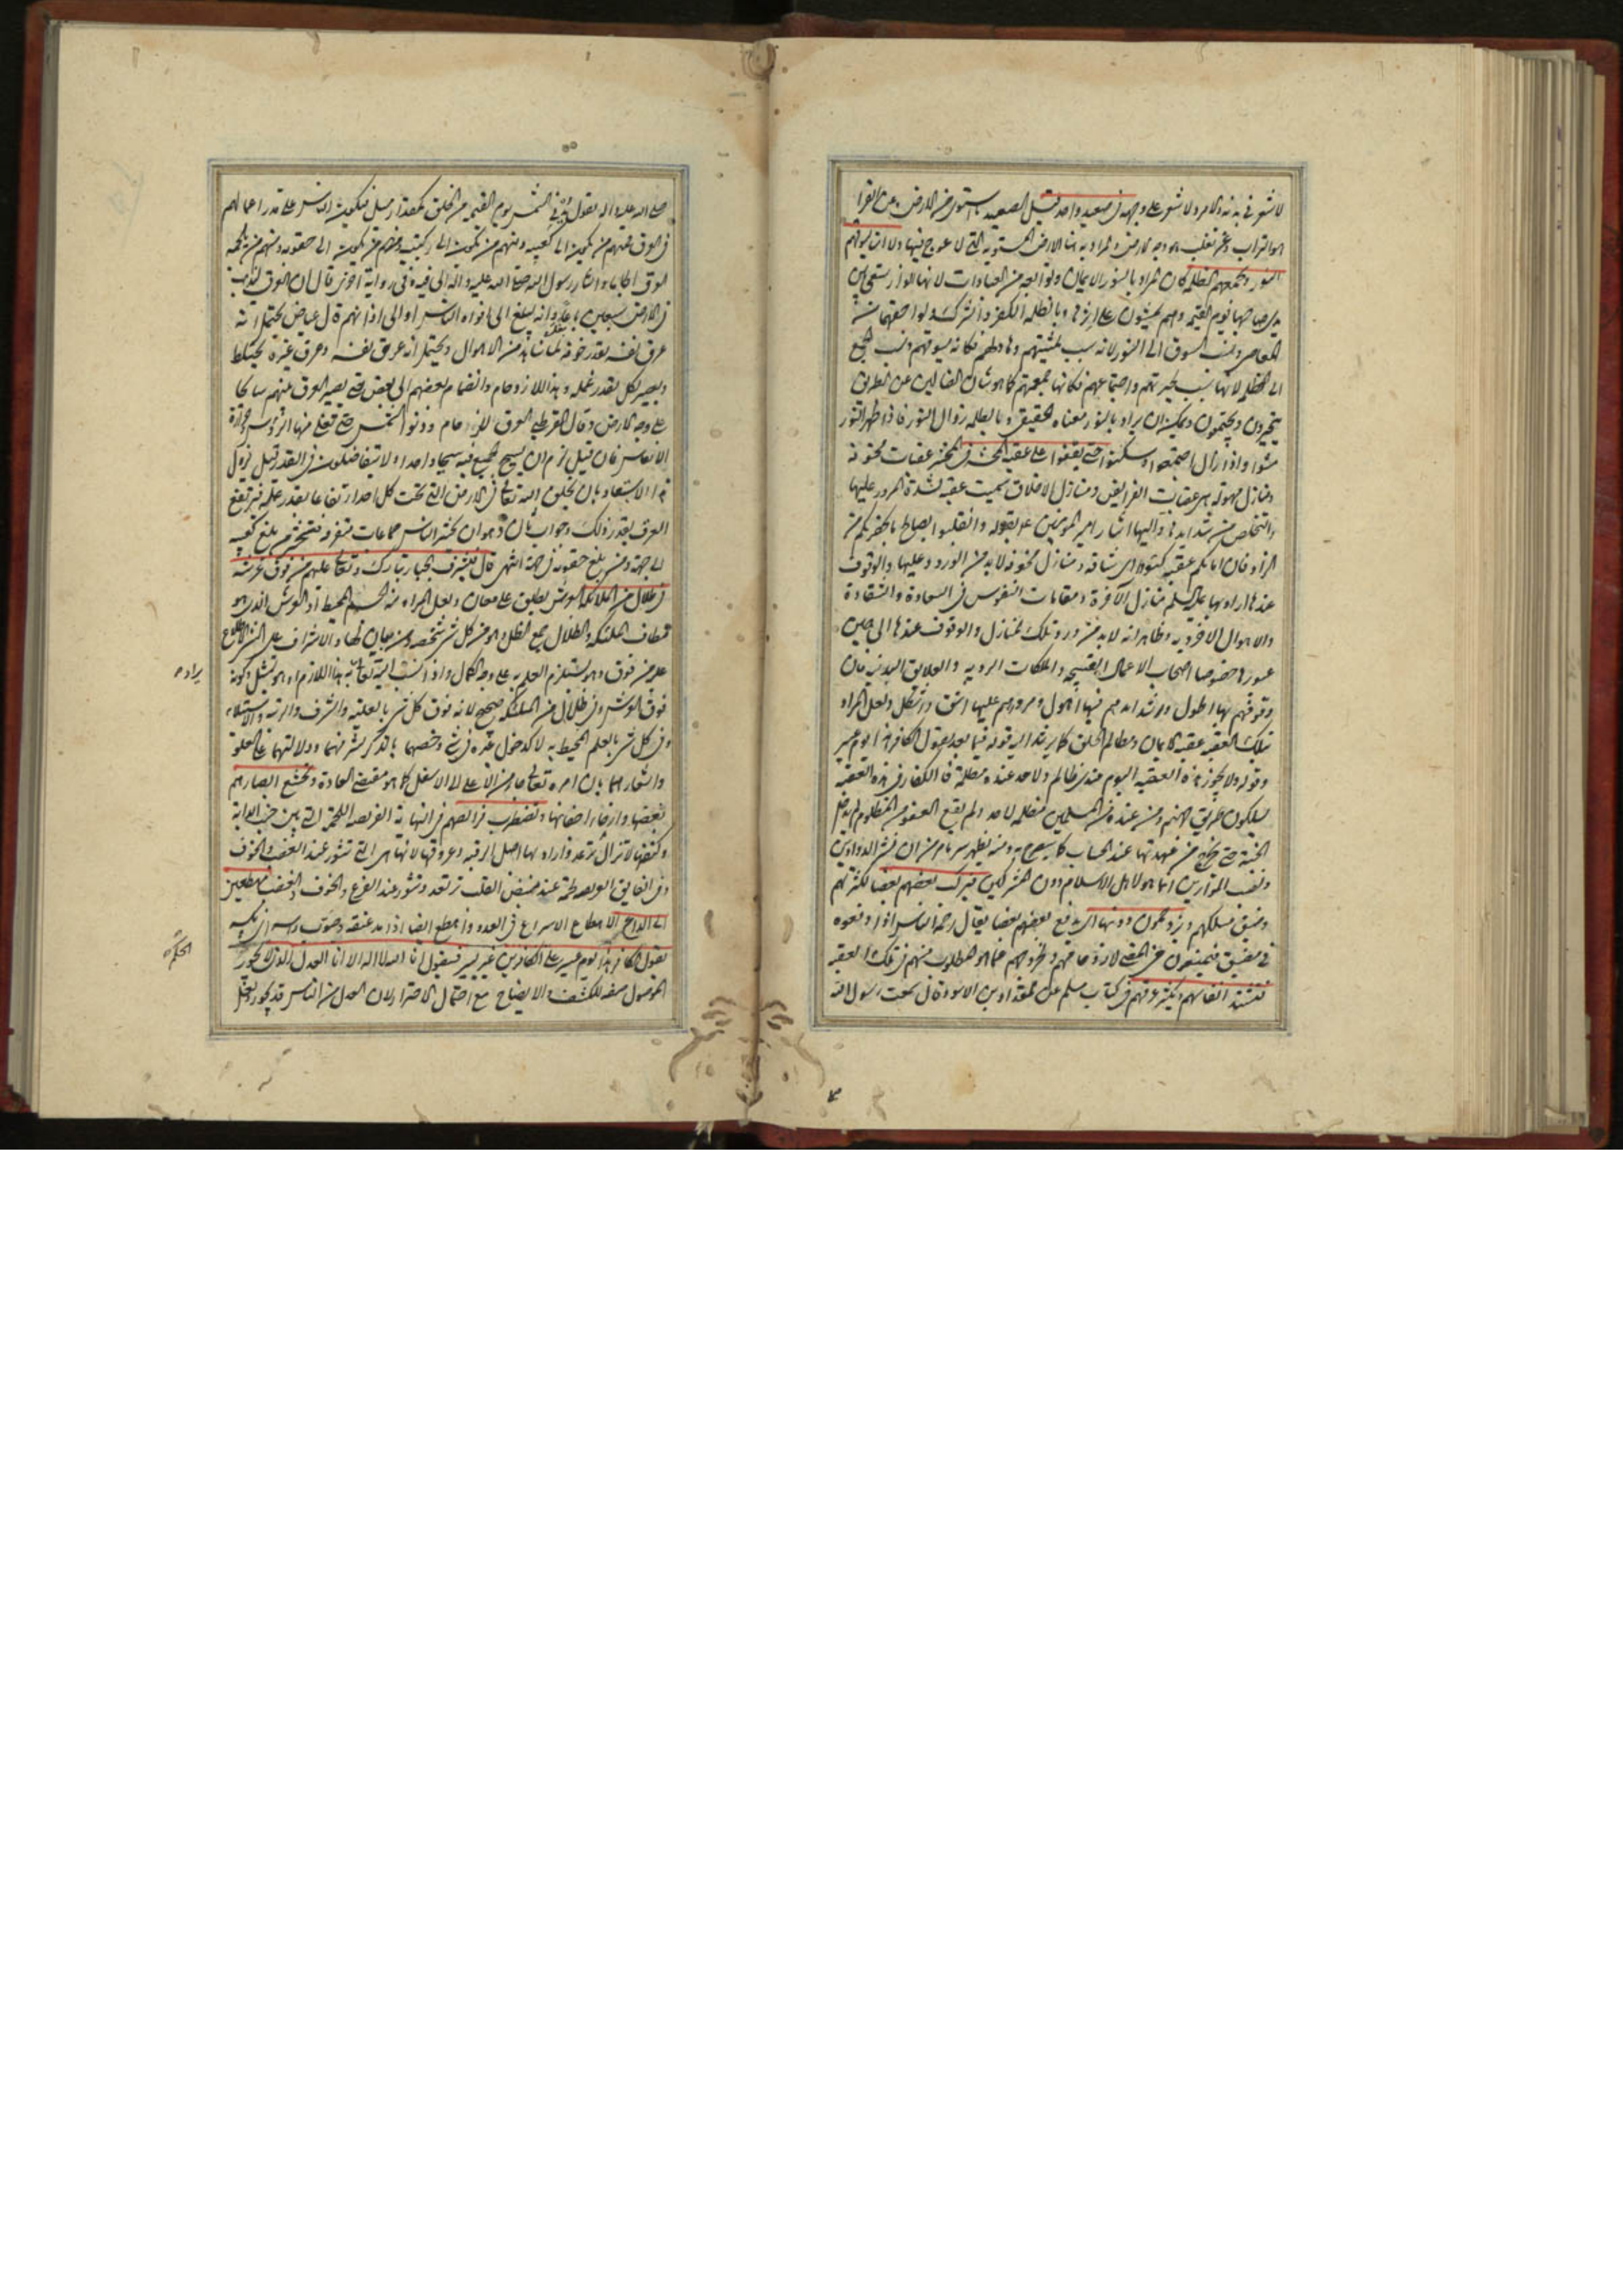 لا شعر في بدنه والامرد لا شعر على وجهه في صعيد واحد قيل الصعيد ما استوى من الارض وعن الفراء
هو التراب وعن ثعلب هو وجه الارض والمراد به هنا الارض المستوية التي لا عوج فيها ولا امتا يسوقهم
النور وتجمعهم الظلمة كان المراد بالنور الايمان وتوابعه من العبادات لانها انوار يسعى بين
يدي صاحبها يوم القيمة وهم يمشون على اثرها وبالظلمة الكفر والشرك ولواحقهما من
المعاصي ونسب السوق الى النور لانه سبب لمشيهم وهاد لهم فكانه يسوقهم ونسب الجمع
الى الظلمة لانها سبب لحيرتهم واجتماعهم فكانها جمعتهم كما هو شان الضالين عن الطريق
يتحيرون ويجتمعون ويمكن ان يراد بالنور معناه الحقيقي وبالظلمة زوال النور فاذا ظهر النور
مشوا واذا زال اجتمعوا وسكنوا حتى يقفوا على عقبة المحشر في المحشر عقبات مخوفة
ومنازل مهولة هي عقبات الفرائض ومنازل الاخلاق سميت عقبة لشدة المرور عليها
والتخلص من شدايدها واليها اشار امير المؤمنين ع بقوله وانقلبوا بصالح ما بحضرتكم من
الزاد فان امامكم عقبة كئودا اي شاقة ومنازل مخوفة لابد من الورود عليها والوقوف
عندها اراد بها عليه السلم منازل الآخرة ومقامات النفوس في السعادة والشقاوة
والاهوال الاخروية وظاهر انه لابد من ورود تلك المنازل والوقوف عندها الى حين
عبورها خصوصا اصحاب الاعمال القبيحة والملكات الردية والعلايق البدنية فان
وقوفهم بها اطول وشدايدهم فيها اهول ومرورهم عليها اشق واشكل ولعل المراد
بتلك العقبة عقبة الايمان ومظالم الخلق كما يرشد اليه قوله فيما بعد يقول الكافر هذا يوم عسر
وقوله ولا يجوز هذه العقبة اليوم عندي ظالم ولاحد عنده مظلمة فالكفار في هذه العقبة
يسلكون طريق جهنم ومن عنده من المسلمين مظلمة لاحد ولم يقع العفو من المظلوم لم يدخل
الجنة حتى يخرج من عهدتها عند الحساب كما سيصرح به ومنه يظهر سر ما مر من ان نشر الدواوين
ونصب الموازين انما هو لاهل الاسلام دون المشركين فيركب بعضهم بعضا لكثرتهم
وضيق مسلكهم ويزدحمون دونها اي يدفع بعضهم بعضا يقال زحمه الناس اذا دفعوه
في مضيق فيمنعون من المضي لازدحامهم ولخروجهم عما هو المطلوب منهم في تلك العقبة
فتشتد انفاسهم ويكثر عرقهم في كتاب مسلم عن المقداد بن الاسود قال سمعت رسول الله
صلى الله عليه واله يقول تدنى الشمس يوم القيمة من الخلق كمقدار ميل فيكون الناس على قدر اعمالهم
في العرق فمنهم من يكون الى كعبيه ومنهم من يكون الى ركبتيه ومنهم من يكون الى حقويه ومنهم من يلجمه
العرق الجاما واشار رسول الله صلى الله عليه واله الى فيه وفي رواية اخرى قال ان العرق ليذهب
في الارض سبعين باعا وانه ليبلغ الى افواه الناس او الى اذانهم قال عياض يحتمل انه
عرق نفسه بقدر خوفه لما شاهد من الاهوال ويحتمل انه عرق نفسه وعرق غيره يختلط
ويصير لكل بقدر عمله وهذا للازدحام وانضمام بعضهم الى بعض حتى يصير العرق بينهم سايحا
على وجه الارض وقال القرطبي العرق للزحام ودنو الشمس حتى تغلي منها الرؤس وحرارة
الانفاس فان قيل لزم ان يسبح الجميع فيه سبحا واحدا ولا يتفاضلون في القدر قيل يزول
هذا الاستبعاد بان يخلق الله تعالى في الارض التي تحت كل احد ارتفاعا بقدر عمله فيرتفع
العرق بقدر ذلك وجواب ثان وهو ان يحشر الناس جماعات متفرقة فيحشر من بلغ كعبيه
الى جهة ومن بلغ حقويه في جهة انتهى قال فيشرف الجبار تبارك وتعالى عليهم من فوق عرشه
في ظلال من الملائكة العرش يطلق على معان ولعل المراد منه الجسم المحيط او العرش الذي هو
مطاف الملئكة والظلال جمع الظل وهو من كل شئ شخصه ومن بيان لها والاشراف على الشئ الاطلاع
عليه من فوق وهو يستلزم العلم به على وجه الكمال واذا نسب اليه تعالى يراد به هذا اللازم او هو تمثيل وكونه
فوق العرش وفي ظلال من الملئكة صحيح لانه فوق كل شئ بالعلية والشرف والرتبة والاستيلاء
وفي كل شئ بالعلم المحيط به لا كدخول غيره في شئ وخصهما بالذكر لشرفهما ودلالتهما على العلو
واشعارهما بان امره تعالى جاء من الاعلى الى الاسفل كما هو مقتضى العادة وتخشع ابصارهم
بغضها وارخاء اجفانها وتضطرب فرائصهم في النهاية الفريصة اللحمة التي بين جنب الدابة
وكتفها لا تزال ترعد واراد بها اصل الرقبة وعروقها لانها هي التي تثور عند الغضب والخوف
وفي الفايق الفريصة لحمة عند منبض القلب ترتعد وتثور عند الفزع والخوف والغضب مهطعين
الى الداع الاهطاع الاسراع في العدو واهطع ايضا اذا مد عنقه وصوب راسه اي نكسه
يقول الكافر هذا يوم عسر على الكافرين غير يسير فيقول انا الله لا اله الا انا الحكم العدل الذي لا يجور
الموصول صفة للكشف والايضاح مع احتمال الاحتراز لان العدل من الناس قد يجور
يراد
الحكم